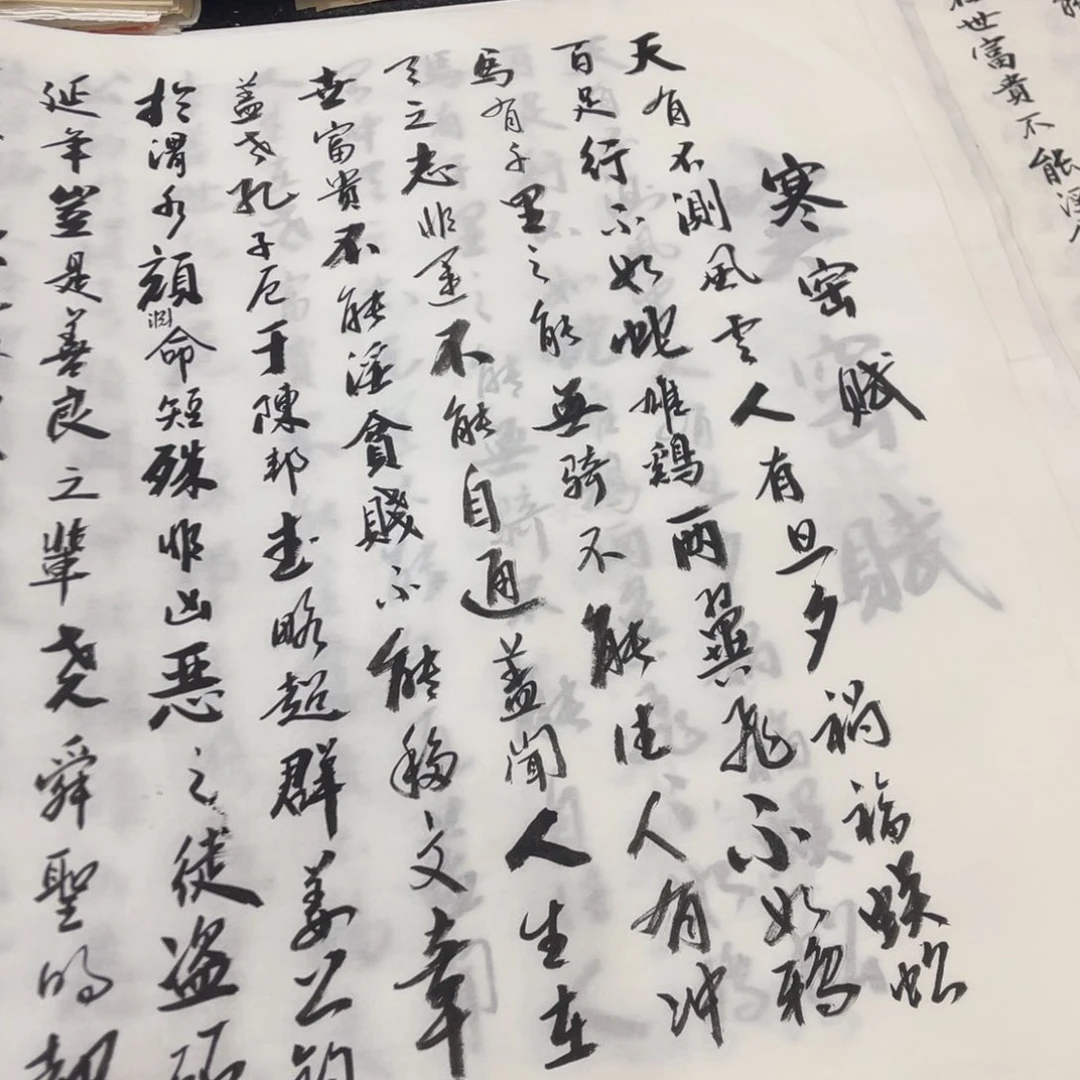 世富貴不能淫
寒窑賦
天有不測風雲人有旦夕禍福蜈蚣
百足行不如蛇雄鷄兩翼飛不如鴉
馬有千里之能無騎不能往人有冲
天之志非運不能自通蓋聞人生在
世富貴不能淫貧賤不能移文章
盖世孔子厄于陳邦武略超群姜公釣
於渭水顔淵命短殊非凶惡之徒盗跖
延年豈是善良之輩堯舜聖明却